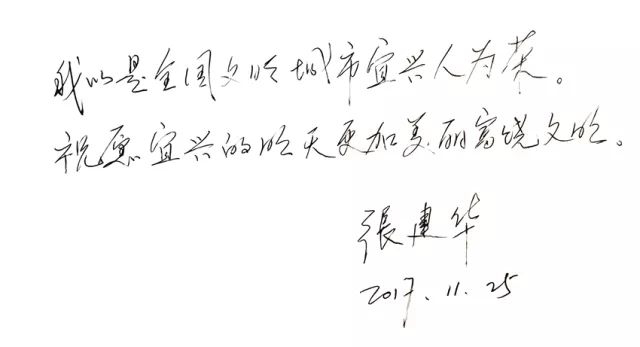 我以是全国文明城市宜兴人为荣。
祝愿宜兴的明天更加美丽富饶文明。
張建华
2017.11.25